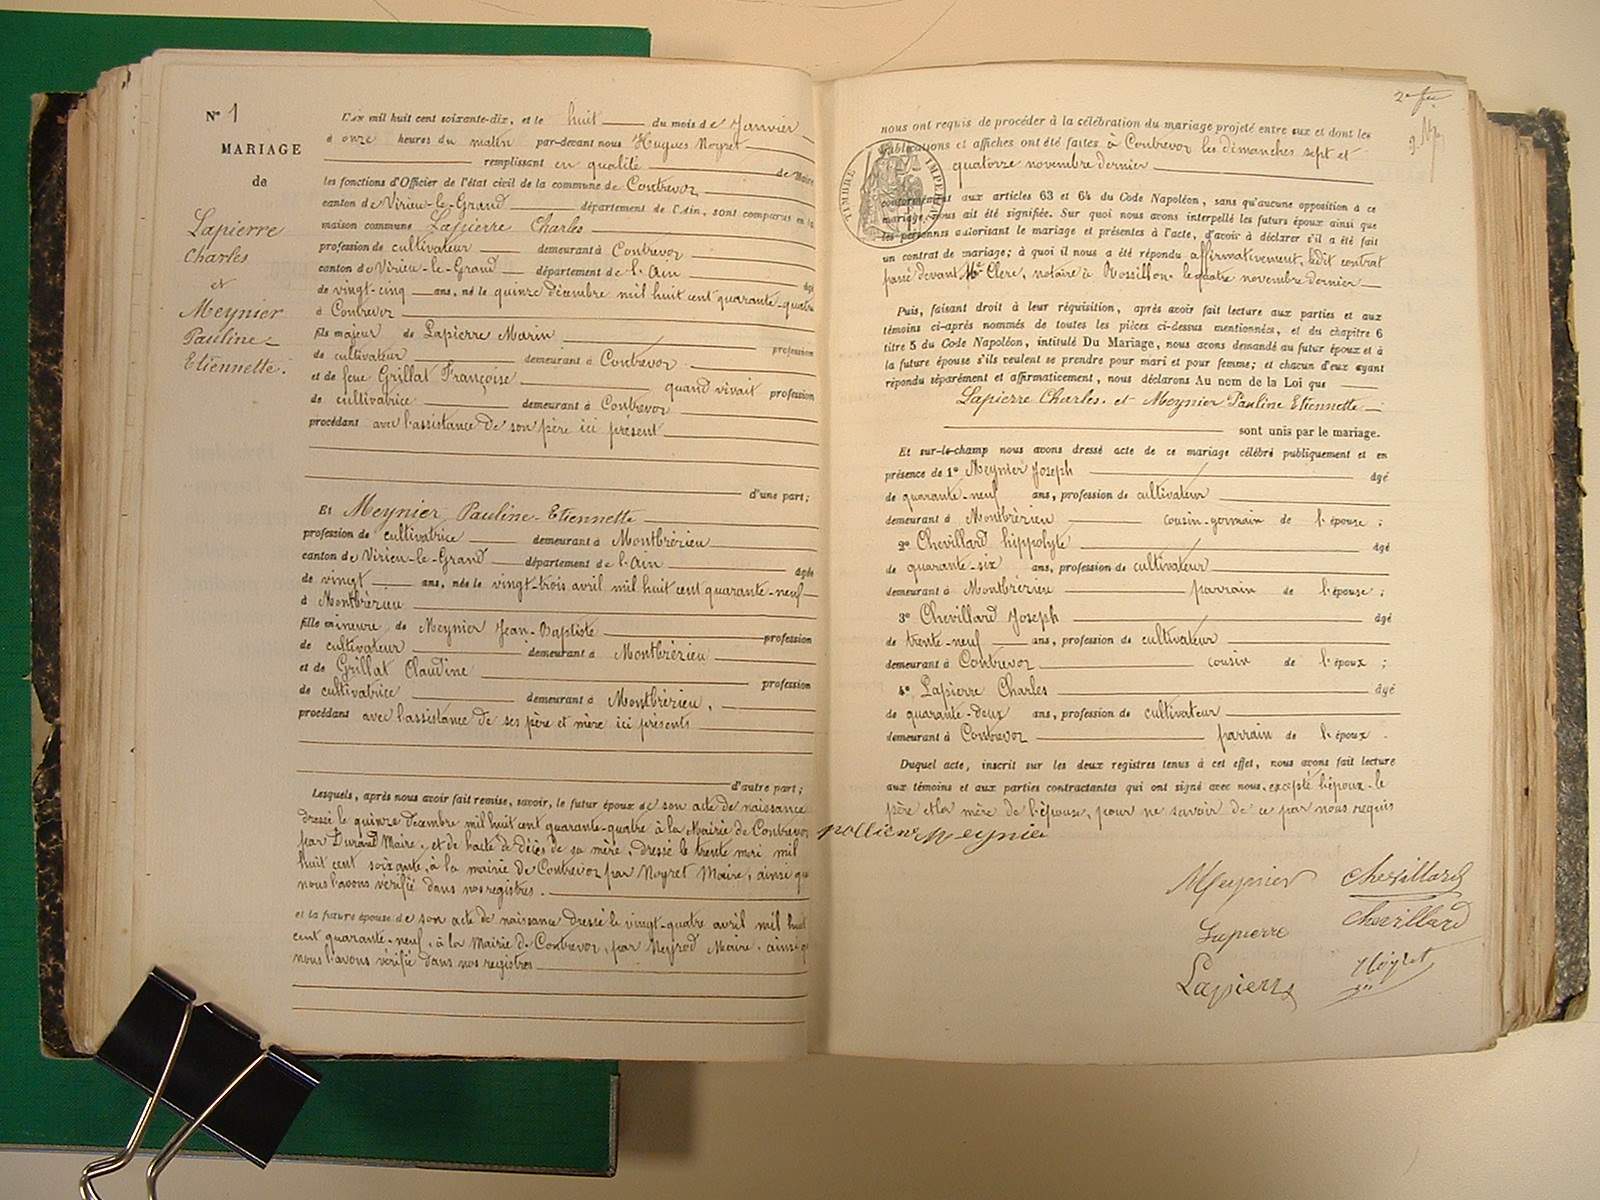 N° 1
MARIAGE
de
Lapierre
Charles
et
Meynier
Pauline-
Etiennette.
L'an mil huit cent soixante-dix, et le huit du mois de Janvier
à onze heures du matin par-devant nous Hugues Noyret
remplissant en qualité de Maire
les fonctions d'Officier de l'état civil de la commune de Contrevoz
canton de Virieu-le-Grand département de l'Ain, sont comparus en la
maison commune Lapierre Charles
profession de cultivateur demeurant à Contrevoz
canton de Virieu-le-Grand département de l'Ain âgé
de vingt-cinq ans, né le quinze décembre mil huit cent quarante-quatre
à Contrevoz
fils majeur de Lapierre Marin profession
de cultivateur demeurant à Contrevoz
et de feue Grillat Françoise quand vivait profession
de cultivatrice demeurant à Contrevoz
procédant avec l'assistance de son père ici présent
d'une part;
Et Meynier Pauline-Etiennette
profession de cultivatrice demeurant à Montbrézieu
canton de Virieu-le-Grand département de l'Ain âgée
de vingt ans, née le vingt-trois avril mil huit cent quarante-neuf
à Montbrézieu
fille mineure de Meynier Jean-Baptiste profession
de cultivateur demeurant à Montbrézieu
et de Grillat Claudine profession
de cultivatrice demeurant à Montbrézieu,
procédant avec l'assistance de ses père et mère ici présents
d'autre part;
Lesquels, après nous avoir fait remise, savoir, le futur époux de son acte de naissance
dressé le quinze décembre mil huit cent quarante-quatre à la Mairie de Contrevoz
par Durand Maire, et de l'acte de décès de sa mère, dressé le trente mai mil
huit cent soixante, à la mairie de Contrevoz par Noyret Maire, ainsi que
nous l'avons vérifié dans nos registres.
et la future épouse de son acte de naissance dressé le vingt-quatre avril mil huit
cent quarante-neuf, à la Mairie de Contrevoz, par Neyrod Maire, ainsi que
nous l'avons vérifié dans nos registres
2e
nous ont requis de procéder à la célébration du mariage projeté entre eux et dont les
publications et affiches ont été faites à Contrevoz les dimanches sept et
quatorze novembre dernier
TIMBRE IMPERIAL
conformément aux articles 63 et 64 du Code Napoléon, sans qu'aucune opposition à ce
mariage, nous ait été signifiée. Sur quoi nous avons interpellé les futurs époux ainsi que
les personnes autorisant le mariage et présentes à l'acte, d'avoir à déclarer s'il a été fait
un contrat de mariage; à quoi il nous a été répondu affirmativement, ledit contrat
passé devant Me Clerc, notaire à Rossillon. le quatre novembre dernier
Puis, faisant droit à leur réquisition, après avoir fait lecture aux parties et aux
témoins ci-après nommés de toutes les pièces ci-dessus mentionnées, et du chapitre 6
titre 5 du Code Napoléon, intitulé Du Mariage, nous avons demandé au futur époux et à
la future épouse s'ils veulent se prendre pour mari et pour femme; et chacun d'eux ayant
répondu séparément et affirmaticement, nous déclarons Au nom de la Loi que
Lapierre Charles. et Meynier Pauline Etiennette
sont unis par le mariage.
Et sur-le-champ nous avons dressé acte de ce mariage célébré publiquement et en
présence de 1° Meynier Joseph âgé
de quarante-neuf ans, profession de cultivateur
demeurant à Montbrézieu cousin-germain de l'épouse;
2° Chevillard hippolyte âgé
de quarante-six ans, profession de cultivateur
demeurant à Montbrézieu parrain de l'épouse;
3° Chevillard Joseph âgé
de trente-neuf ans, profession de cultivateur
demeurant à Contrevoz cousin de l'époux;
4° Lapierre Charles âgé
de quarante-deux ans, profession de cultivateur
demeurant à Contrevoz parrain de l'époux.
Duquel acte, inscrit sur les deux registres tenus à cet effet, nous avons fait lecture
aux témoins et aux parties contractantes qui ont signé avec nous, excepté l'époux. le
père et la mère de l'épouse, pour ne savoir de ce par nous requis
Meynier
Meynier Chevillard
Chevillard
Lapierre
Noyret
Lapierre